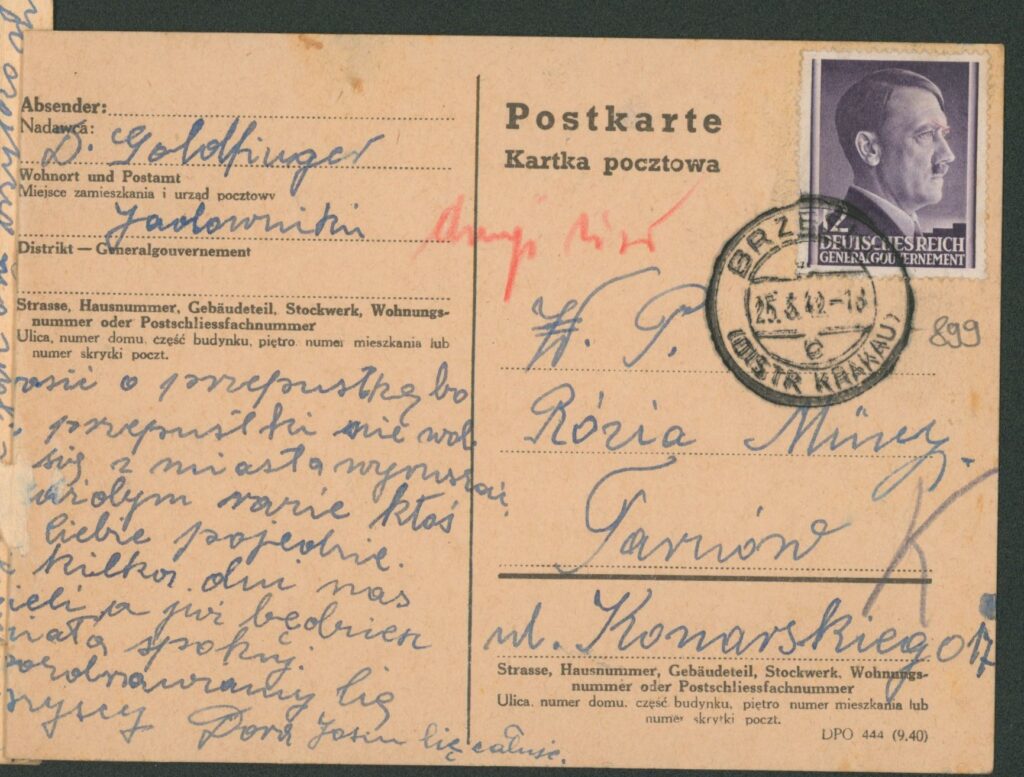 Absender:
Nadawca:
D. Goldfinger
Wohnort und Postamt
Miejsce zamieszkania i urząd pocztowy
Jadowniki
Distrikt — Generalgouvernement
Strasse, Hausnummer, Gebäudeteil, Stockwerk, Wohnungs-
nummer oder Postschliessfachnummer
Ulica, numer domu, część budynku, piętro numer mieszkania lub
numer skrytki poczt.
prosić o przepustkę bo
przepustki nie wol
się z miasta wyruszać,
każdym razie ktoś
Ciebie pojedzie.
kilka dni nas
a już będziesz
miała spokój.
pozdrawiamy Cię
wszyscy Dora Josiu Cię całuje.
Postkarte
Kartka pocztowa
DEUTSCHES REICH
GENERALGOUVERNEMENT
BRZE
25.8.42-18
c
(DISTR. KRAKAU)
drugi list
899
W. P.
Rózia Münz.
Tarnów
K
ul. Konarskiego 17
Strasse, Hausnummer, Gebäudeteil, Stockwerk, Wohnungs-
nummer oder Postschliessfachnummer
Ulica, numer domu, część budynku, piętro numer mieszkania lub
numer skrytki poczt.
DPO 444 (9.40)